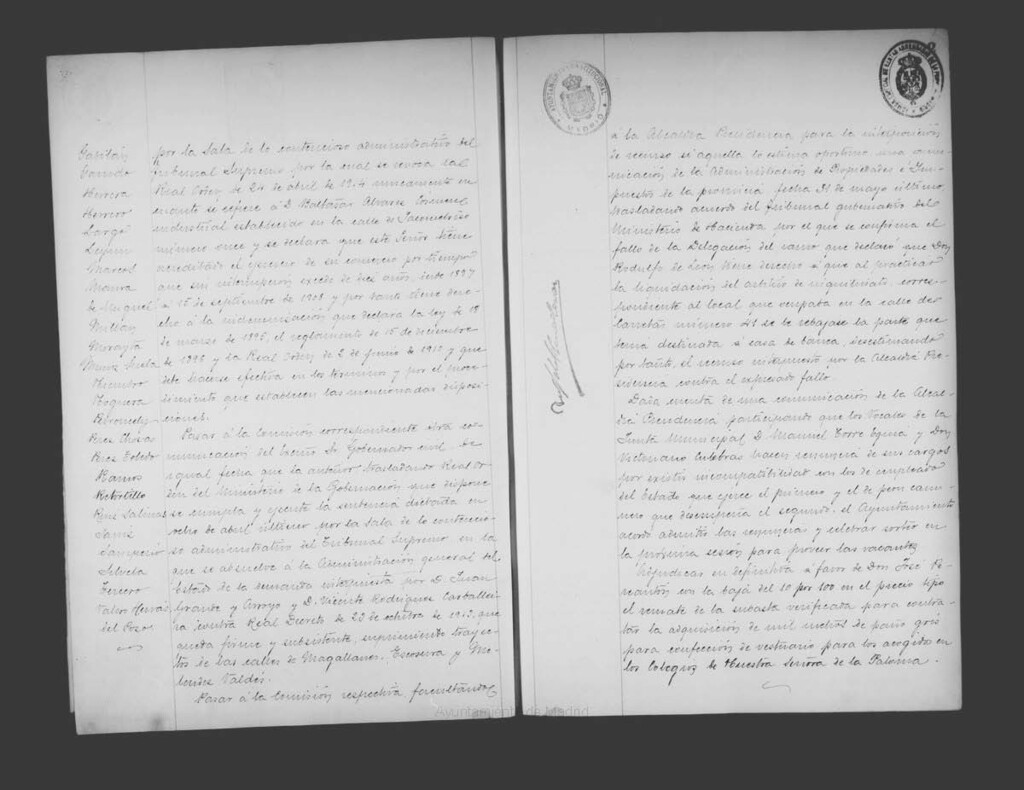 Garitán
Garrido
Herrera
Herrero
Largé
Marcos
Maura
de Miguel
Millán
Morayta
Noguera
Ramos
Retortillo
Ruiz Salinas
Sanz
Samperio
Silvela
Tercero
Valero Hervás
del Pozo
por la Sala de lo contencioso administrativo del
Tribunal Supremo por la cual se revoca la
Real Orden de 24 de abril de 1914 unicamente en
cuanto se refiere á D. Baltasar Alvarez
industrial establecido en la calle de Jacometrezo
número once y se declara que este Señor tiene
acreditado el ejercicio de su comercio por tiempo
que sin interrupción excede de diez años, desde 1897
á 15 de septiembre de 1908 y por tanto tiene dere-
cho á la indemnización que declara la ley de 18
de marzo de 1895, el reglamento de 15 de diciembre
de 1896 y la Real Orden de 2 de junio de 1910 y que
debe hacerse efectiva en los terminos y por el proce-
dimiento que establecen las mencionadas disposi-
ciones.
Pasar á la Comisión correspondiente otra co-
municación del Excmo. Sr. Gobernador civil de
igual fecha que la anterior trasladando Real Or-
den del Ministerio de la Gobernación que dispone
se cumpla y ejecute la sentencia dictada en
ocho de abril último por la Sala de lo contencio-
so administrativo del Tribunal Supremo en la
que se absuelve á la Administración general del
Estado de la demanda interpuesta por D. Juan
Grande y Arroyo y D. Vicente Rodriguez Carballei-
ra contra Real Decreto de 20 de octubre de 1913, que
queda firme y subsistente, suprimiendo trayec-
tos de las calles de Magallanes, Escosura y Me-
lendez Valdés.
Pasar á la Comisión respectiva facultando
AYUNTAMIENTO CONSTITUCIONAL
MADRID
á la Alcaldia Presidencia para la interposición
de recurso si aquella lo estima oportuno, una comu-
nicación de la Administración de Propiedades é Im-
puestos de la provincia fecha 31 de mayo último,
trasladando acuerdo del Tribunal gubernativo del
Ministerio de Hacienda por el que se confirma el
fallo de la Delegación del ramo que declaró que Don
Rodolfo de León tiene derecho á que al practicar
la liquidación del arbitrio de inquilinato, corres-
pondiente al local que ocupaba en la calle de
Carretas número 41 se le rebajase la parte que
tenia destinada á casa de banca, desestimando
por tanto, el recurso interpuesto por la Alcaldia Pre-
sidencia contra el expresado fallo.
Dada cuenta de una comunicación de la Alcal-
dia Presidencia participando que los Vocales de la
Junta Municipal D. Manuel Torre Eguia y Don
Victoriano Culebras hacen renuncia de sus cargos
por existir incompatibilidad con los de empleado
del Estado que ejerce el primero y el de peón cami-
nero que desempeña el segundo, el Ayuntamiento
acordó admitir las renuncias y celebrar sorteo en
la próxima sesión para proveer las vacantes.
Adjudicar en definitiva á favor de Don José
con la baja del 10 por 100 en el precio tipo
el remate de la subasta verificada para contra-
tar la adquisición de mil metros de paño gris
para confección de vestuario para los acogidos en
los Colegios de Nuestra Señora de la Paloma.
Ayuntamiento de Madrid